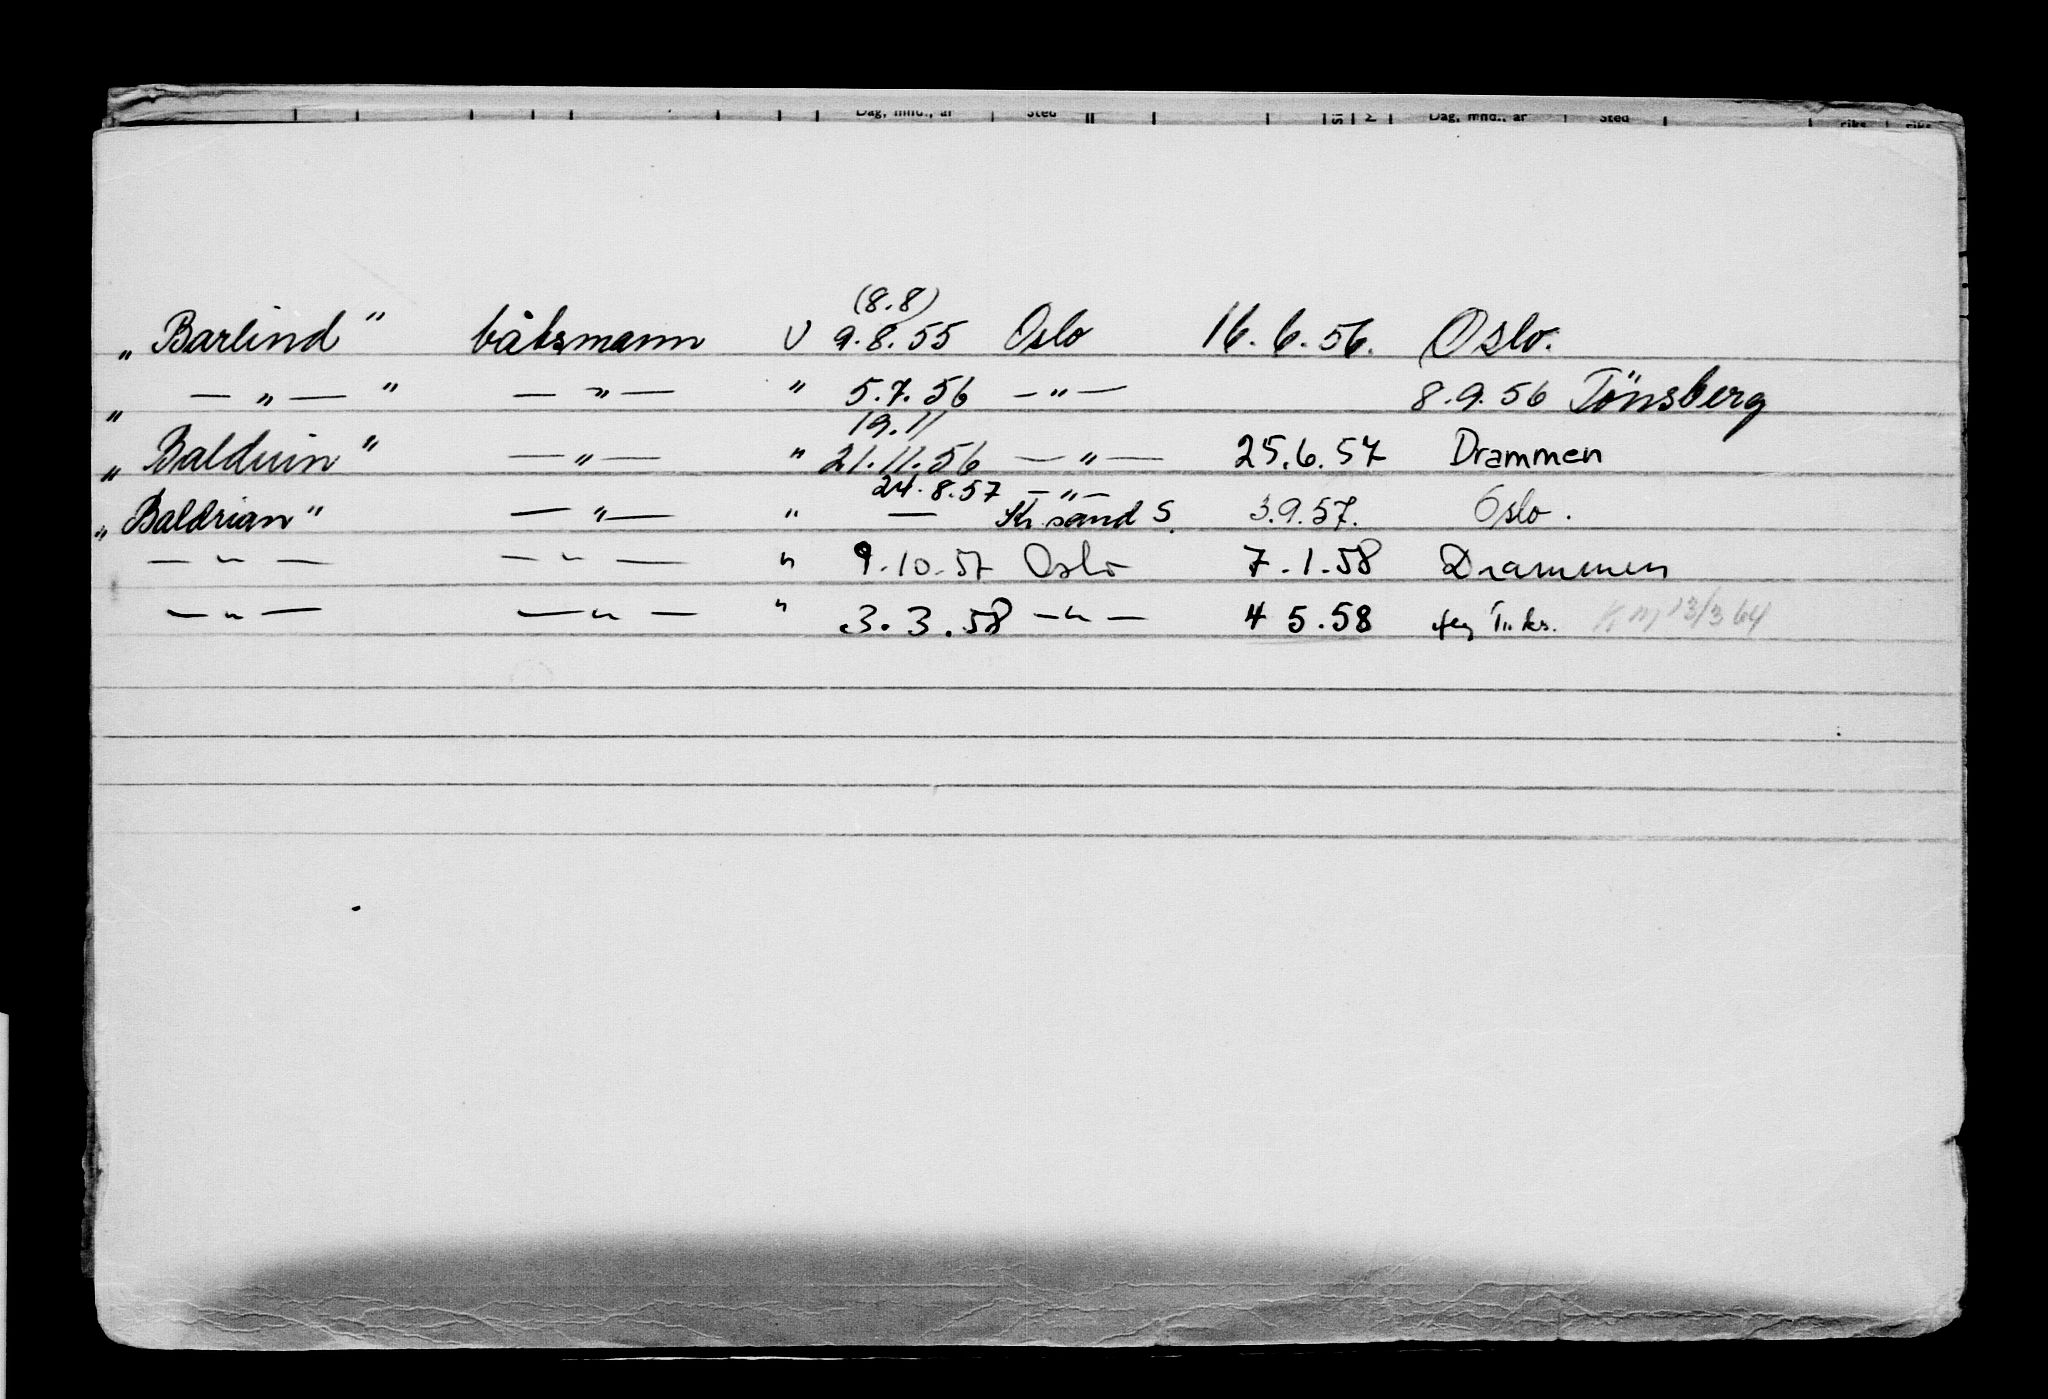 Dag, mnd., år Sted Dag, mnd., år Sted riks riks
(8.8)
„Barlind" båtsmann U 9.8.55 Oslo 16.6.56. Oslo.
„ — „ — " — „ — " 5.7.56 — „ — 8.9.56 Tönsberg
19.11
„Balduin" — „ — " 21.11.56 — „ — 25.6.57 Drammen
24.8.57 — „ —
„Baldrian" — „ — " — Kr.sand S. 3.9.57. Oslo.
— „ — — „ — " 9.10.57 Oslo 7.1.58 Drammen
— „ — — „ — " 3.3.58 — „ — 4 5.58 13/3 64